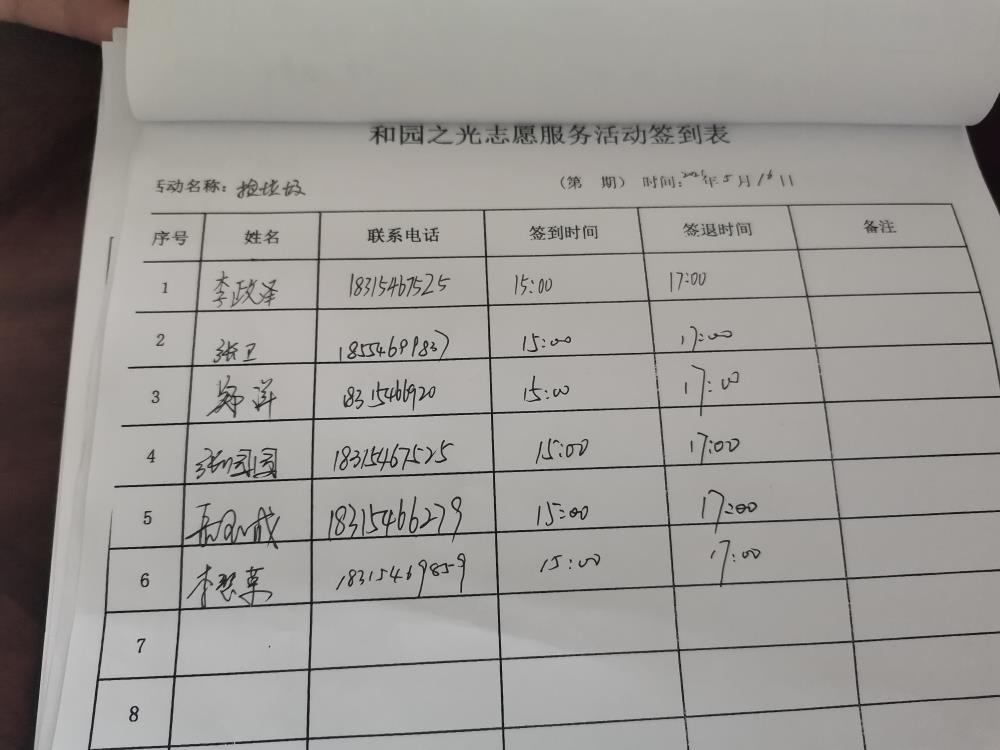 和园之光志愿服务活动签到表
动名称：捡垃圾 （第 期） 时间：2021年5月16日
序号 姓名 联系电话 签到时间 签退时间 备注
1 李政泽 18315467525 15:00 17:00
2 张卫 18554699837 15:00 17:00
3 郑洋 1831546920 15:00 17:00
4 张园园 18315467525 15:00 17:00
5 18315466279 15:00 17:00
6 李慧荣 18315469859 15:00 17:00
7
8